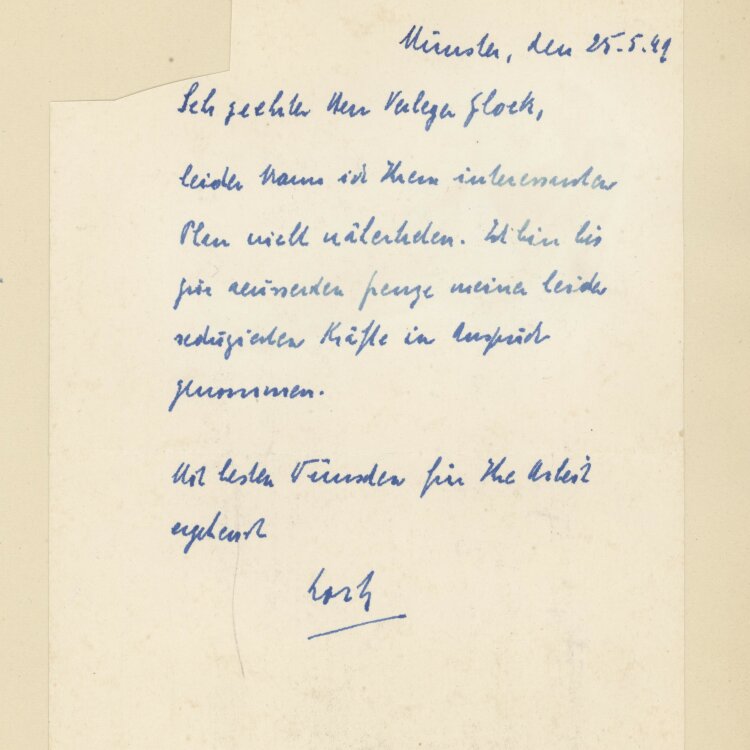 Münster, den 25.5.49
Sehr geehrter Herr Verleger Glock,
leider kann ich Ihrem interessanten
Plan nicht nähertreten. Ich bin bis
zur aeussersten Grenze meiner leider
reduzierten Kräfte in Anspruch
genommen.
Mit besten Wünschen für Ihre Arbeit
ergebenst